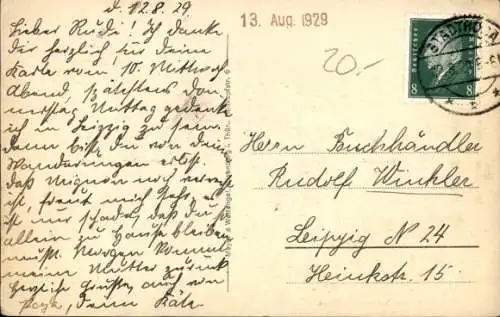 d. 12.8.29
Lieber Rudi! Ich danke
Dir herzlich für Deine
Karte vom 10. Mittwoch
Abend, spätestens Don-
nerstag Mittag gedenke
ich in Leipzig zu sein,
dann bist Du von Deinen
Wanderungen erlöst.
Daß Mignon noch
ist, freut mich sehr, es
ist nur schade, daß Du so
allein zu Hause bleiben
mußt. Morgen kommt
meine Mutter zurück.
Herzliche Grüße, auch von
Deine Käte
13. Aug. 1929
20.-
STADTRODA
Deutsches
8 8
Herrn Buchhändler
Rudolf Winkler
Leipzig N 24
Heinkstr. 15